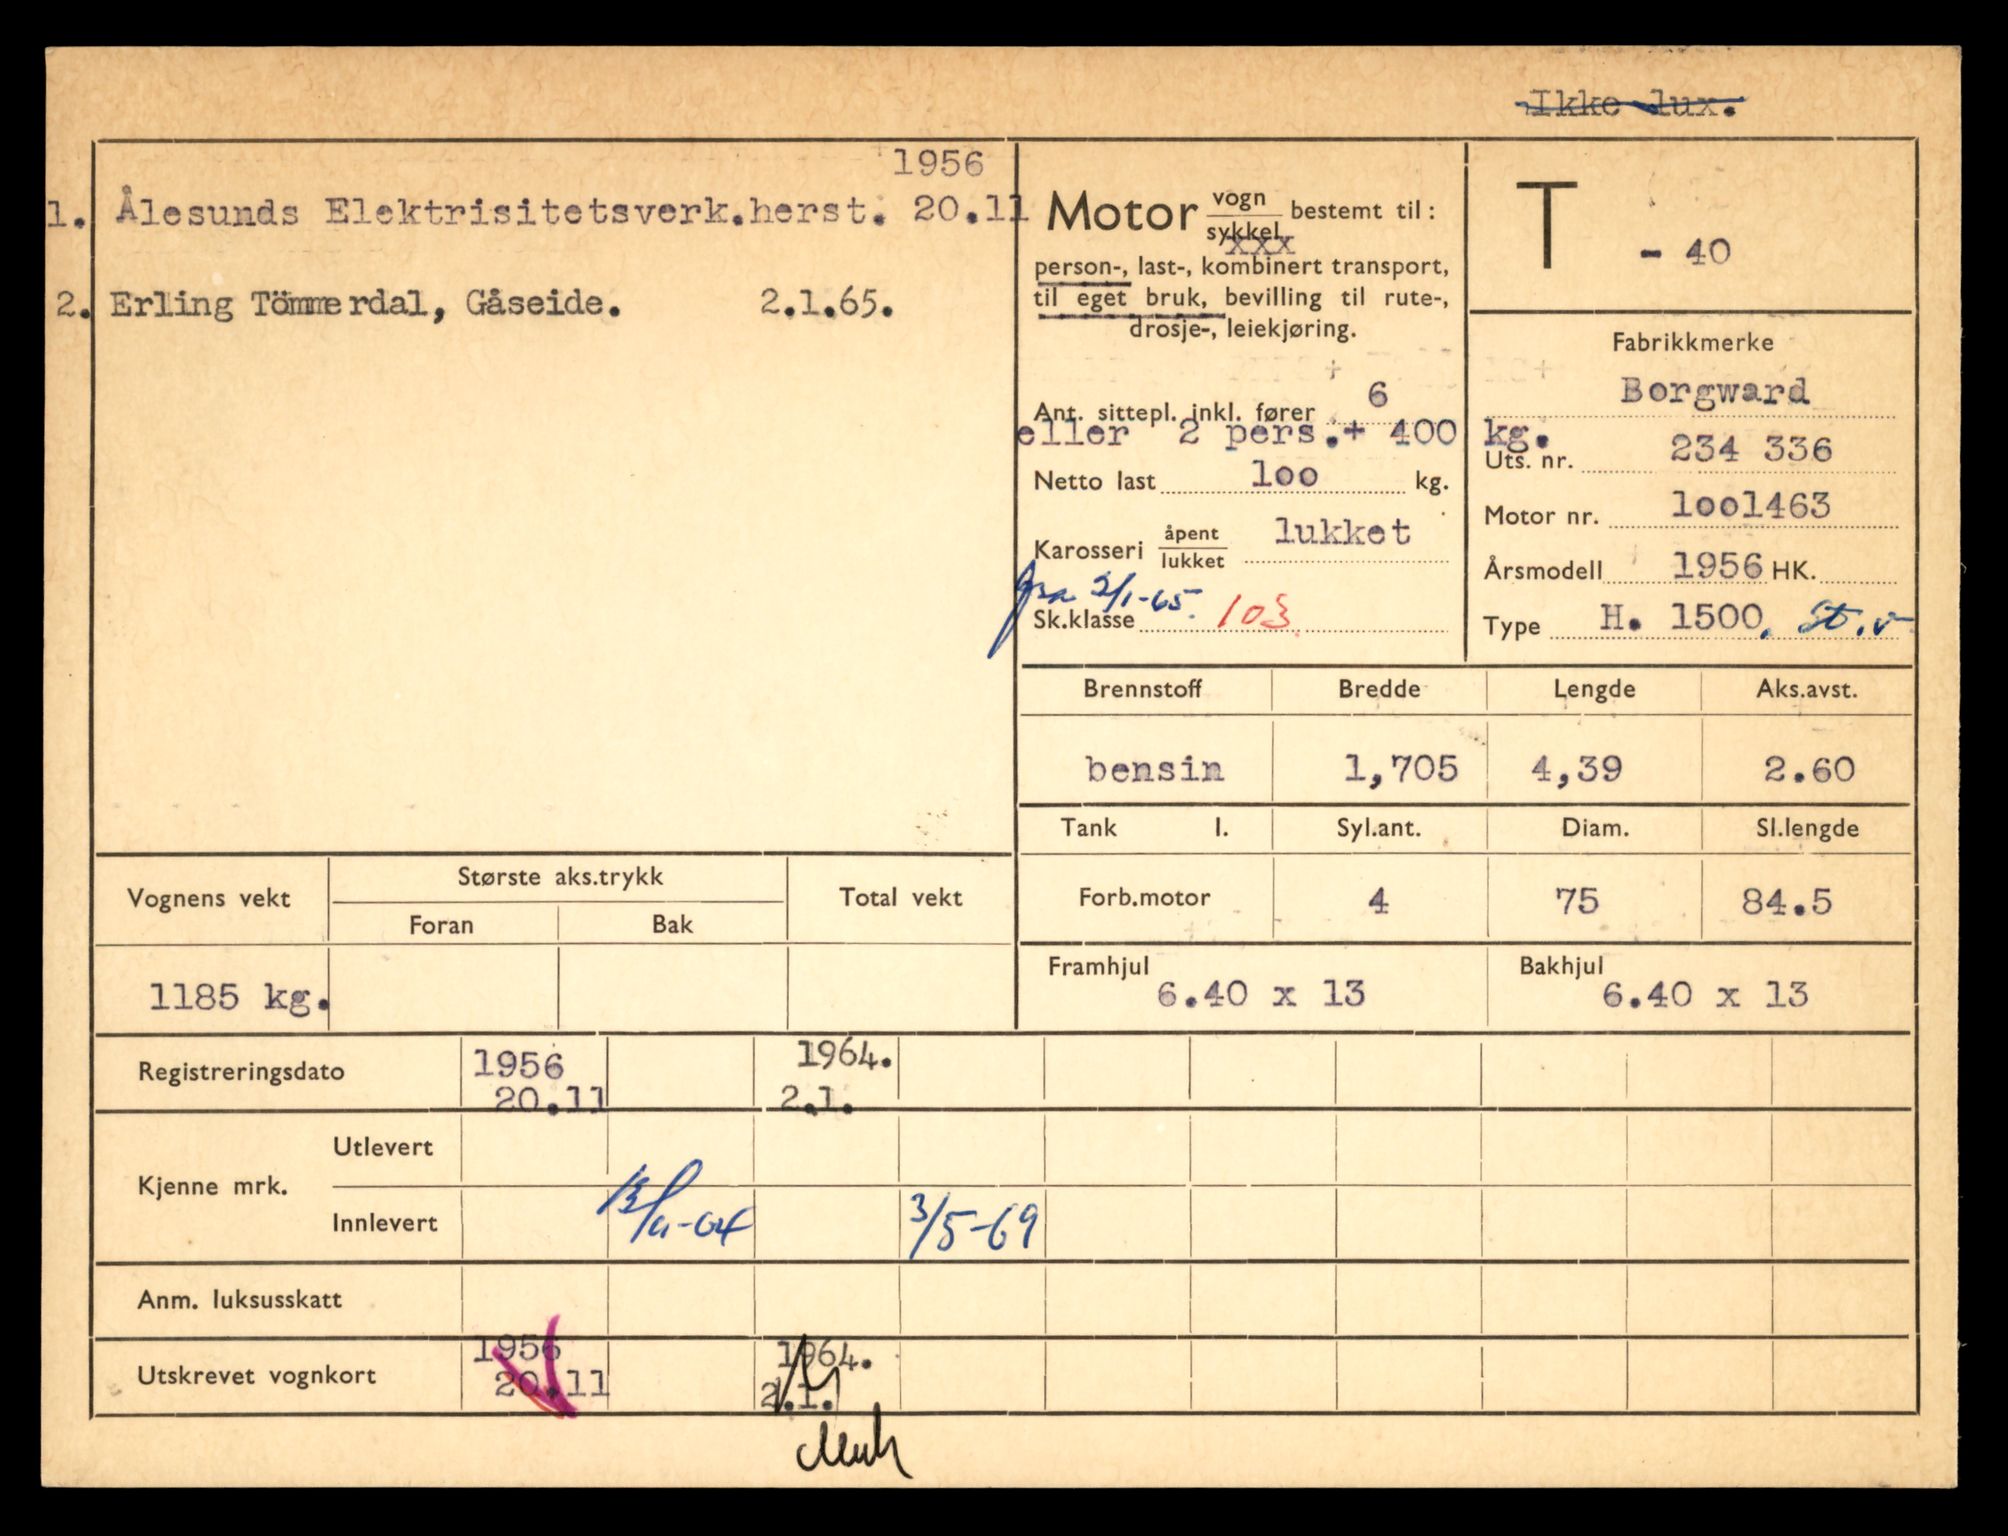 Ikke lux.
1956
1. Ålesunds Elektrisitetsverk.herst. 20.11
2. Erling Tömmerdal, Gåseide. 2.1.65.
Motor vogn bestemt til:
sykkel
xxx
person-, last-, kombinert transport,
til eget bruk, bevilling til rute-,
drosje-, leiekjøring.
Ant. sittepl. inkl. fører 6
eller 2 pers.+ 400 kg.
Netto last 1oo kg.
Karosseri åpent lukket
lukket
fra 2/1-65.
Sk.klasse 103
T - 40
Fabrikkmerke
Borgward
Uts. nr. 234 336
Motor nr. 1oo1463
Årsmodell 1956 HK.
Type H. 1500. St.v
Brennstoff Bredde Lengde Aks.avst.
bensin 1,705 4,39 2.60
Tank l. Syl.ant. Diam. Sl.lengde
Forb.motor 4 75 84.5
Framhjul 6.40 x 13
Bakhjul 6.40 x 13
Vognens vekt Største aks.trykk Total vekt
Foran Bak
1185 kg.
Registreringsdato 1956 1964.
20.11 2.1.
Kjenne mrk.
Utlevert
Innlevert 3/5-69
Anm. luksusskatt
Utskrevet vognkort 1956 1964.
20.11 2.1.